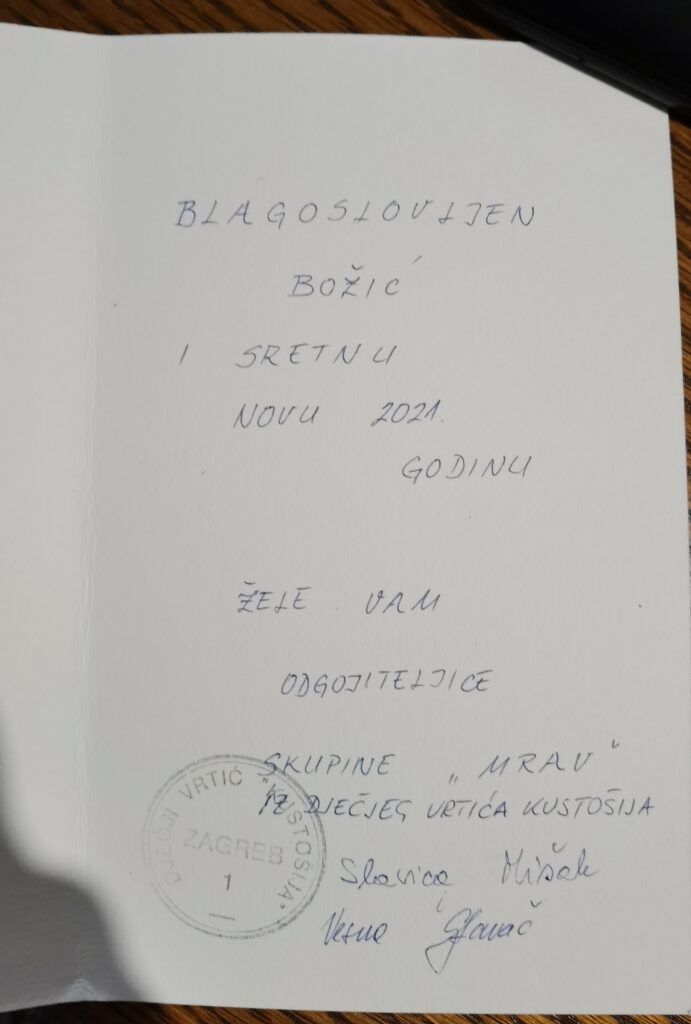 BLAGOSLOVLJEN
BOŽIĆ
I SRETNU
NOVU 2021.
GODINU
ŽELE VAM
ODGOJITELJICE
SKUPINE „MRAV"
IZ DJEČJEG VRTIĆA KUSTOŠIJA
Slavica Mišak
i
Vesna
DJEČJI VRTIĆ "KUSTOŠIJA"
ZAGREB
1